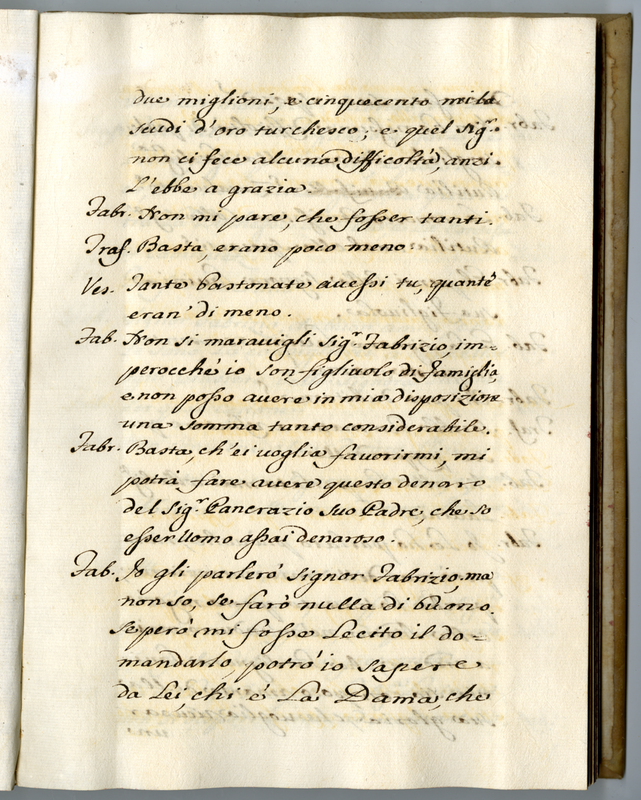 due miglioni, e cinquecento mila
scudi d'oro turchesco, e quel Sig.r
non ci fece alcuna difficoltà, anzi
l'ebbe a grazia.
Fabr. Non mi pare, che fosser tanti.
Traf. Basta, erano poco meno.
Ves. Tante bastonate avessi tu, quant'
eran' di meno.
Fab. Non si maravigli Sig.r Fabrizio, im=
perocché io son figliuolo di famiglia,
e non posso avere in mia disposizione
una somma tanto considerabile.
Fabr. Basta, ch'ei voglia favorirmi, mi
potrà fare avere questo denaro
del Sig.r Pancrazio suo Padre, che so
esser Uomo assai denaroso.
Fab. Io gli parlerò Signor Fabrizio, ma
non so, se farò nulla di buono.
Se però mi fosse Lecito il do=
mandarlo potrò io sapere
da Lei, chi é La Dama, che